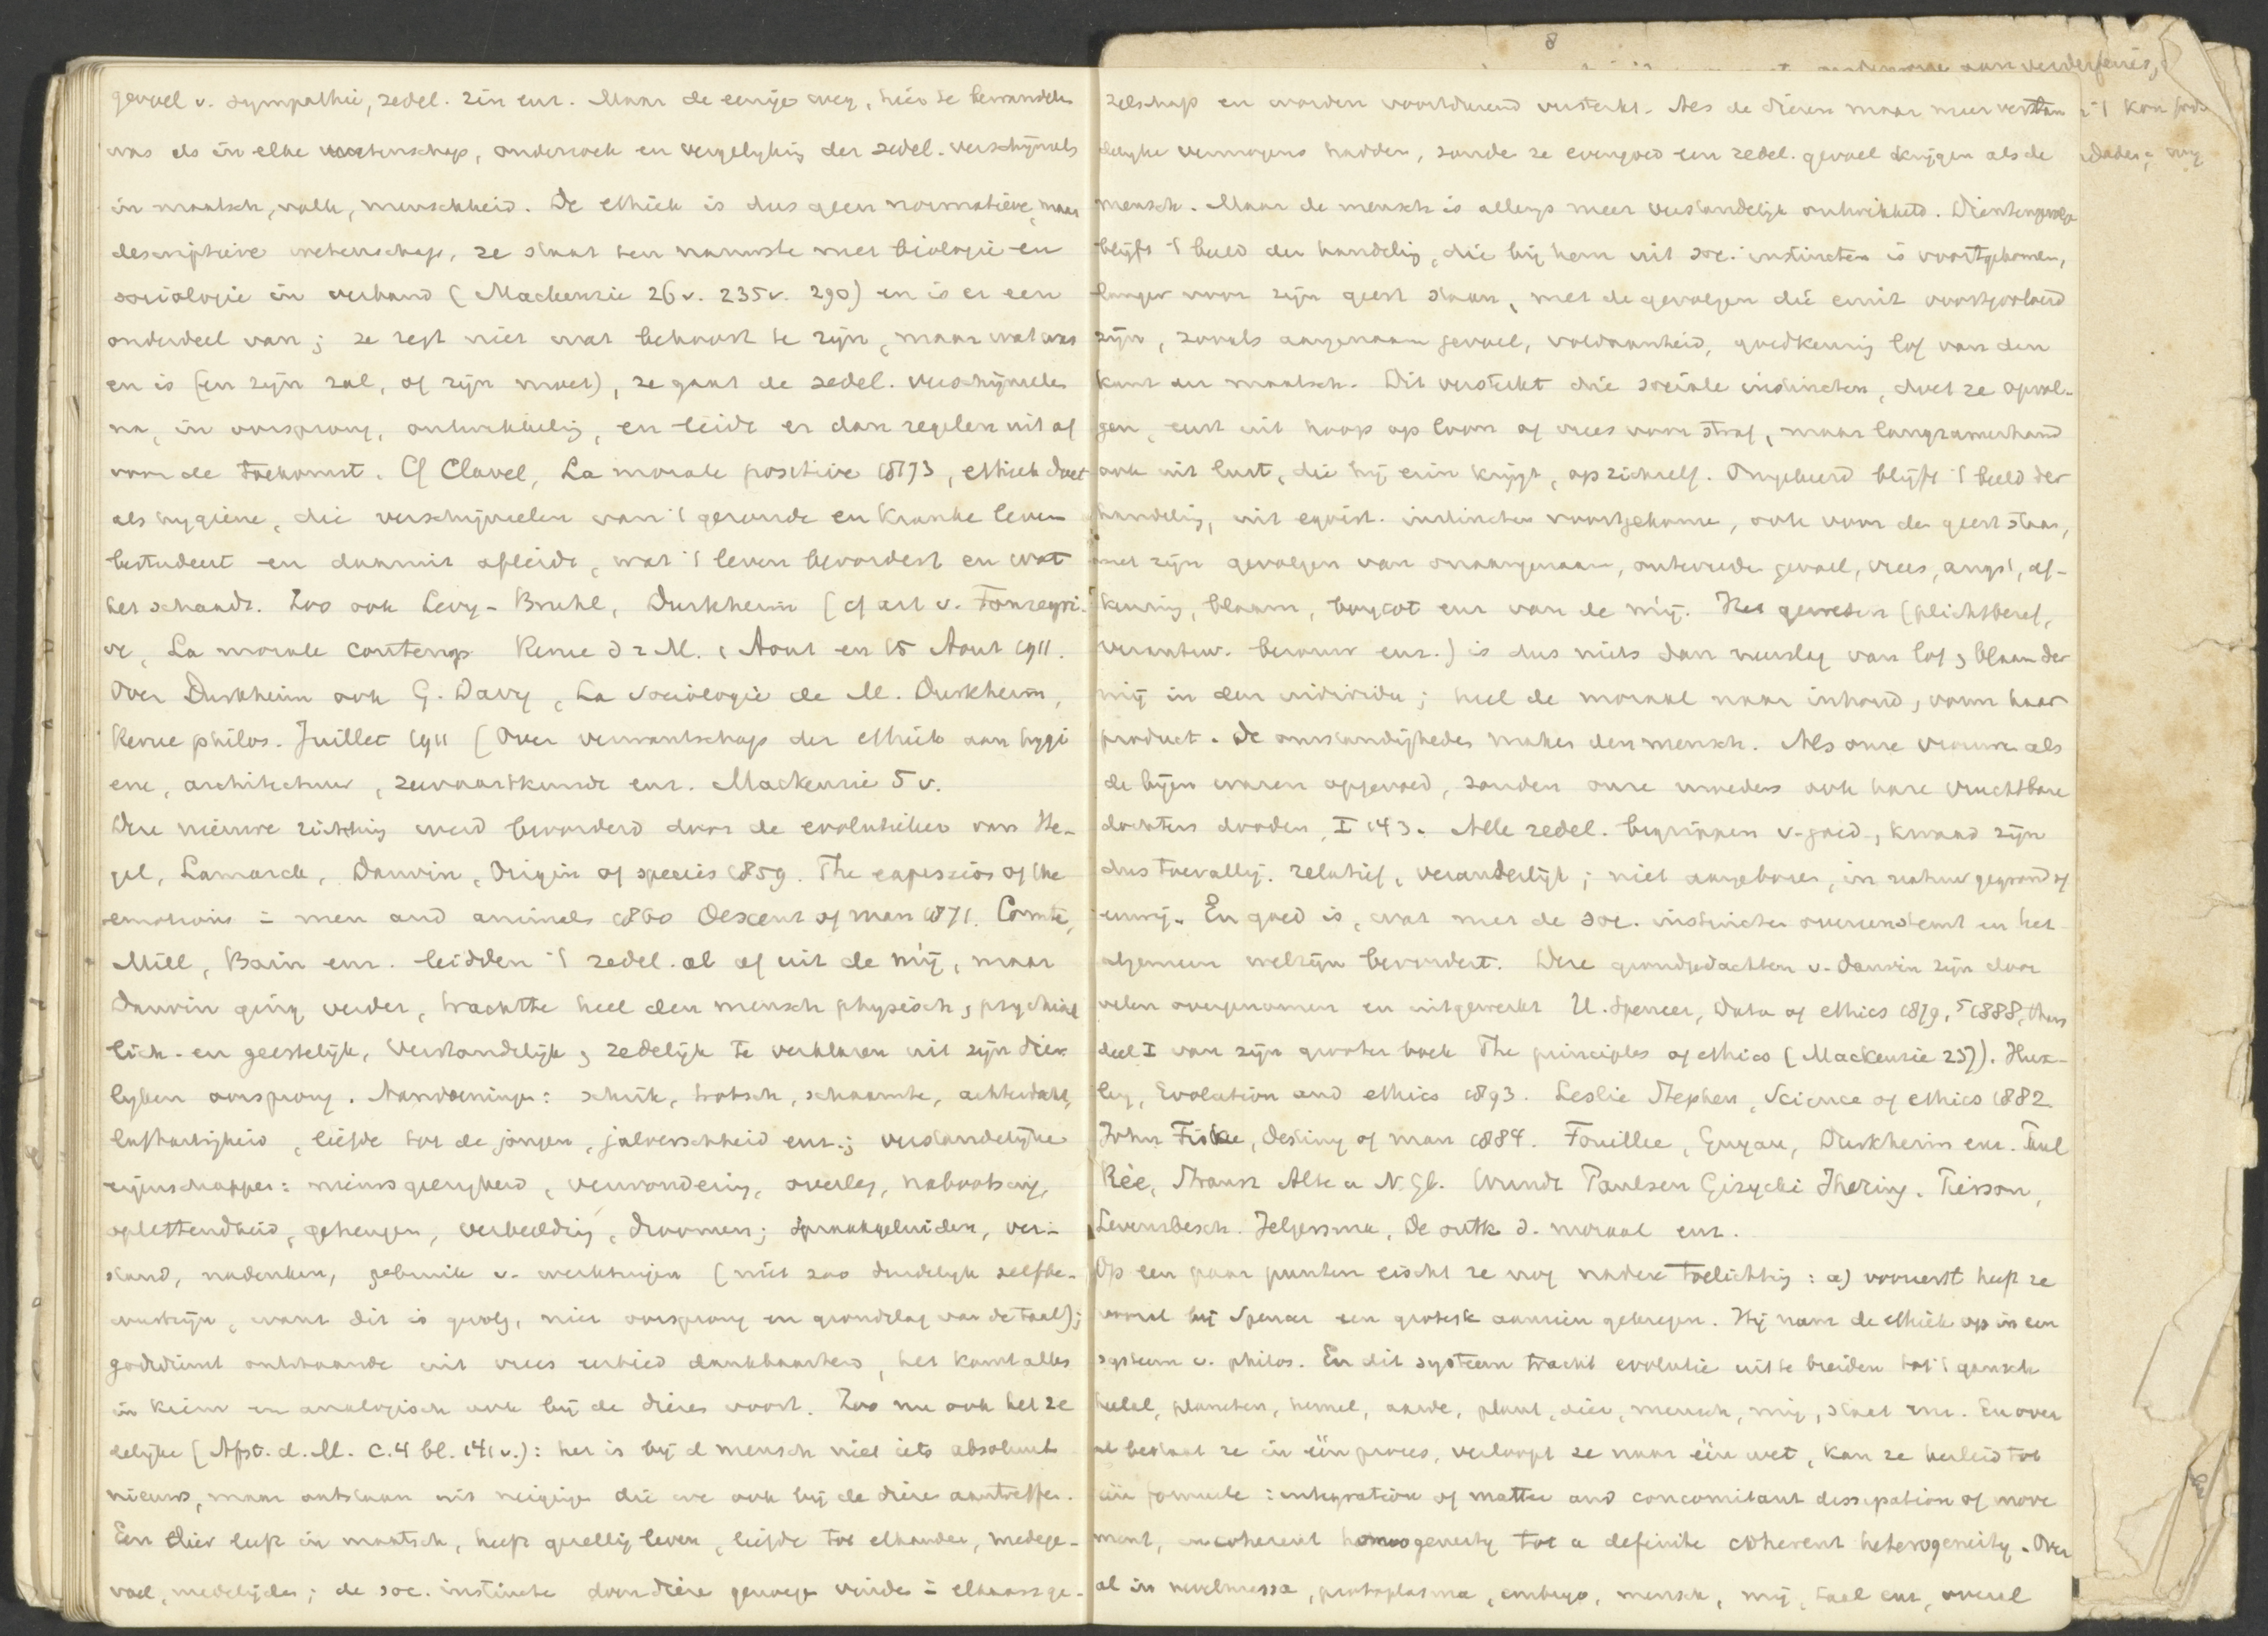 gevoel v. sympathie, zedel. zin enz. Maar de eenige weg, hier te bewandelen
was als in elke wetenschap, onderzoek en vergelyking der zedel. verschijnsels
in maatsch, volk, menschheid. De ethiek is dus geen normatieve, maar
descriptieve wetenschap, ze staat ten nauwste met biologie en
sociologie in verband (Mackenzie 26v. 235v. 290) en is er een
onderdeel van; ze zegt niet wat behoort te zijn, maar wat was
en is (en zijn zal, of zijn moet), ze gaat de zedel. verschijnselen
na, in oorsprong, ontwikkelig, en leidt er dan regelen uit af
voor de toekomst. Cf Clavel, La morale positive 1873, ethiek doet
als hygiene, die verschijnselen van 't gezonde en kranke leven
bestudeert en daaruit afleidt, wat 't leven bevordert en wat
het schaadt. Zoo ook Levy-Bruhl, Durkheim (cf art v. Fonsegri-
ve, La morale contemp Revue d 2 M. 1 Aout en 15 Aout 1911.
Over Durkheim ook G. Davy, La sociologie de M. Durkheim,
Revue philos. Juillet 1911 (Over verwantschap der ethiek aan hygi
ene, architectuur, zeevaartkunde enz. Mackenzie 5v.
Deze nieuwe richting werd bevorderd door de evolutieleer van He-
gel, Lamarck, Darwin, Origin of species 1859. The expression of the
emotions = men and animals 1860 Descent of man 1871. Comte,
Mill, Bain enz. leidden 't zedel. al af uit de mij, maar
Darwin ging verder, trachtte heel den mensch physisch, psychisch
lich- en geestelijk, verstandelijk, zedelijk te verklaren uit zijn dier
lyken oorsprong. Aandoeningen: schrik, trotsch, schaamte, achterdocht,
lafhartigheid, liefde tot de jongen, jaloerschheid enz.; verstandelijke
eigenschappen: nieuwsgierigheid, verwondering, overleg, nabootsing,
oplettendheid, geheugen, verbeelding, droomen; spraakgeluiden, ver-
stand, nadenken, gebruik v. werktuigen (niet zoo duidelyk zelfbe-
wustzijn, want dit is gevolg, niet oorsprong en grondslag van de taal);
godsdienst ontstaande uit vrees eerbied dankbaarheid, het komt alles
in kiem en analogisch ook bij de dieren voort. Zoo nu ook het ze
delijke (Afst. d. M. C.4 bl. 141v.): het is bij d mensch niet iets absoluut
nieuws, maar ontstaan uit neigigen die we ook bij de dieren aantreffen.
Een dier leeft in maatsch, heeft gezellig leven, liefde tot elkander, medege-
voel, medelijden; de soc. instincten doen dieren genoegen vinden = elkaars ge-
zelschap en worden voortdurend versterkt. Als de dieren maar meer verstan
delyke vermogens hadden, zouden ze evengoed een zedel. gevoel krijgen als de
mensch. Maar de mensch is allengs meer verstandelijk ontwikkeld. Dientengevolge
blijft 't beeld der handelig, die bij hem uit soc. instincten is voortgekomen,
langer voor zijn geest staan, met de gevolgen die eruit voortgevloeid
zijn, zooals aangenaam gevoel, voldaanheid, goedkeurig lof van den
kant der maatsch. Dit versterkt die sociale instincten, doet ze opvol-
gen, eerst uit hoop op loon of vrees voor straf, maar langzamerhand
ook uit lust, die hij erin krijgt, op zichzelf. Omgekeerd blijft 't beeld der
handelig, uit egoist. instincten voortgekomen, ook voor den geest staan,
met zijn gevolgen van onaangenaam, ontevreden gevoel, vrees, angst, af-
keurig, blaam, boycot enz van de mij. Het geweten (plichtsbesef,
verantw. berouw enz.) is dus niets dan neerslag van lof, blaam der
mij in den individu; heel de moraal naar inhoud, vorm haar
product. De omstandigheden maken den mensch. Als onze vrouwen als
de bijen waren opgevoed, zouden onze moeders ook hare vruchtbare
dochters dooden, I 143. Alle zedel. begrippen v. goed, kwaad zijn
dus toevallig. relatief, veranderlijk; niet aangeboren, in natuur gegrond of
eeuwig. En goed is, wat met de soc. instincten overeenstemt en het
algemeen welzijn bevordert. Deze grondgedachten v. Darwin zijn door
velen overgenomen en uitgewerkt H. Spencer, Data of ethics 1879, 5 1888, thans
deel I van zijn grooter boek The principles of ethics (Mackenzie 237). Hux-
ley, Evolution and ethics 1893. Leslie Stephen, Science of ethics 1882
John Fiske, Destiny of man 1884. Fouillee, Guyau, Durkheim enz. Paul
Rée, Strauss Alte u N. Gl. Wundt Paulsen Gizycki Jhering. Pierson,
Levensbesch. Jelgersma, De ontk d. moraal enz.
Op een paar punten eischt ze nog nadere toelichting: a) vooreerst heeft ze
vooral bij Spencer een grotesk aanzien gekregen. Hij nam de ethiek op in een
systeem v. philos. En dit systeem tracht evolutie uit te breiden tot 't gansch
heelal, planeten, hemel, aarde, plant, dier, mensch, mij, staat enz. En over
al bestaat ze in één proces, verloopt ze naar één wet, kan ze herleid tot
één formule: integration of matter and concomitant dissipation of move
ment, incoherent homogeneity tot a definite coherent heterogeneity. Over
al in nevelmassa, protoplasma, embryo, mensch, mij, taal enz, overal